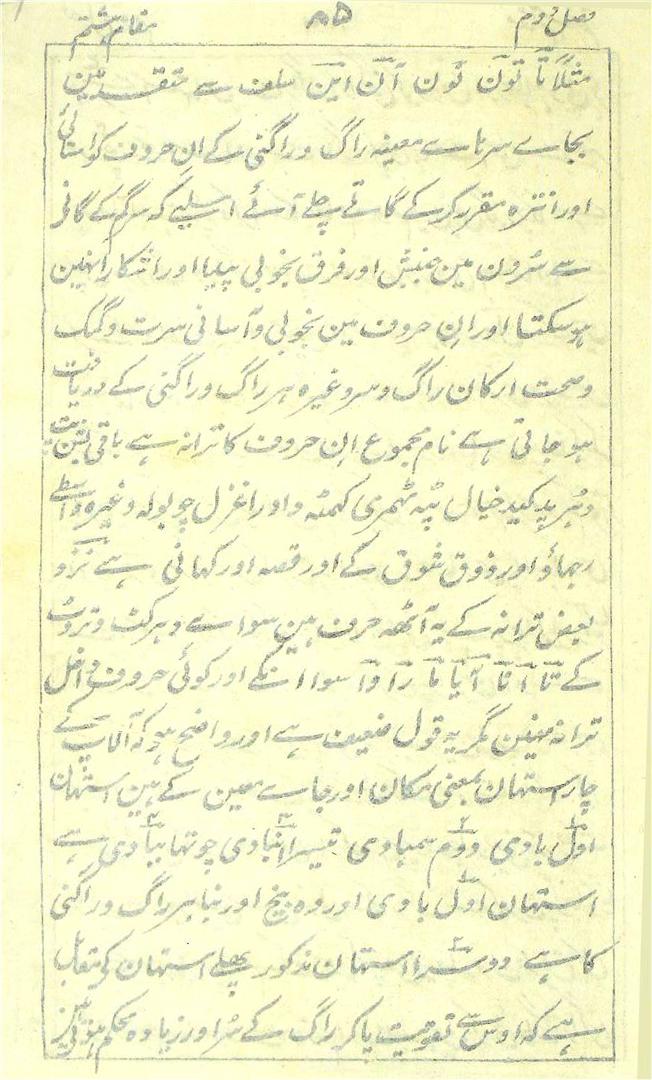 فصل دوم ۸۵ مقام ہشتم
مثلاً تا تون نون آن این سلف سے متقدمین
بجاے سرہاے معینہ راگ و راگنی کے ان حروف کو استائی
اور انترہ مقرر کرکے گاتے چلے آئے اسلیے کہ سرگم کے گانی
سے سُرون مین جنبش اور فرق بخوبی پیدا اور اشکارا نہین
ہوسکتا اور ان حروف مین بخوبی و آسانی سرت و گمک
و صحت ارکان راگ و سر وغیرہ ہر راگ و راگنی کے دریافت
ہوجاتی ہے نام مجموع ان حروف کا ترانہ ہے باقی
دہرپد کبد خیال ٹپہ ٹھمری کہمٹہ و اورا غزل چوبولہ وغیرہ واسطے
رہماؤ اور ذوق شوق کے اور قصہ اور کہانی ہے نزد
بعض ترانہ کے یہ آٹھہ حرف ہین سواے دہرکٹ و تروٹ
کے تا آ نا آ یا ما را وا سوا انکے اور کوئی حروف داخل
ترانہ نہین مگر یہ قول ضعیف ہے اور واضح ہو کہ آلاپ کے
چار استہان بمعنی مکان اور جاے معین کے ہین استہان
اول بادی دوم سمبادی تیسرا انبادی چوتہا ببادی ہے
استہان اول بادی اور وہ بیخ اور بنا ہر راگ و راگنی
کا ہے دوسرا استہان مذکور پچھلے استہان کی متقابل
ہے کہ اوس سے تقویت پاکر راگ کے سُر اور زیادہ محکم ہوتے ہین